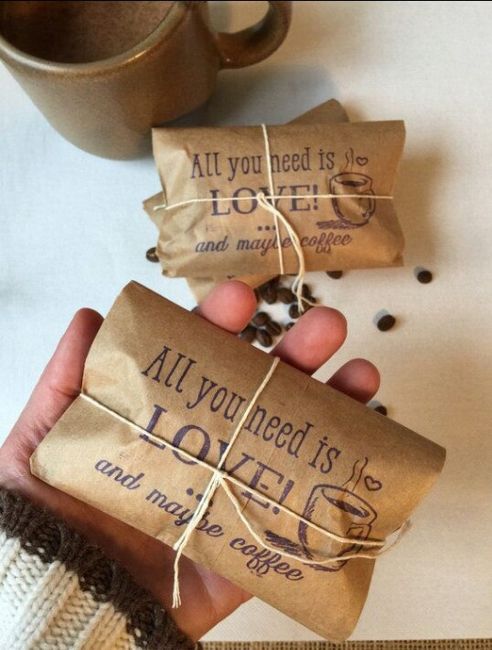 All you need is
LOVE!
...
and maybe coffee
All you need is
LOVE!
...
and maybe coffee